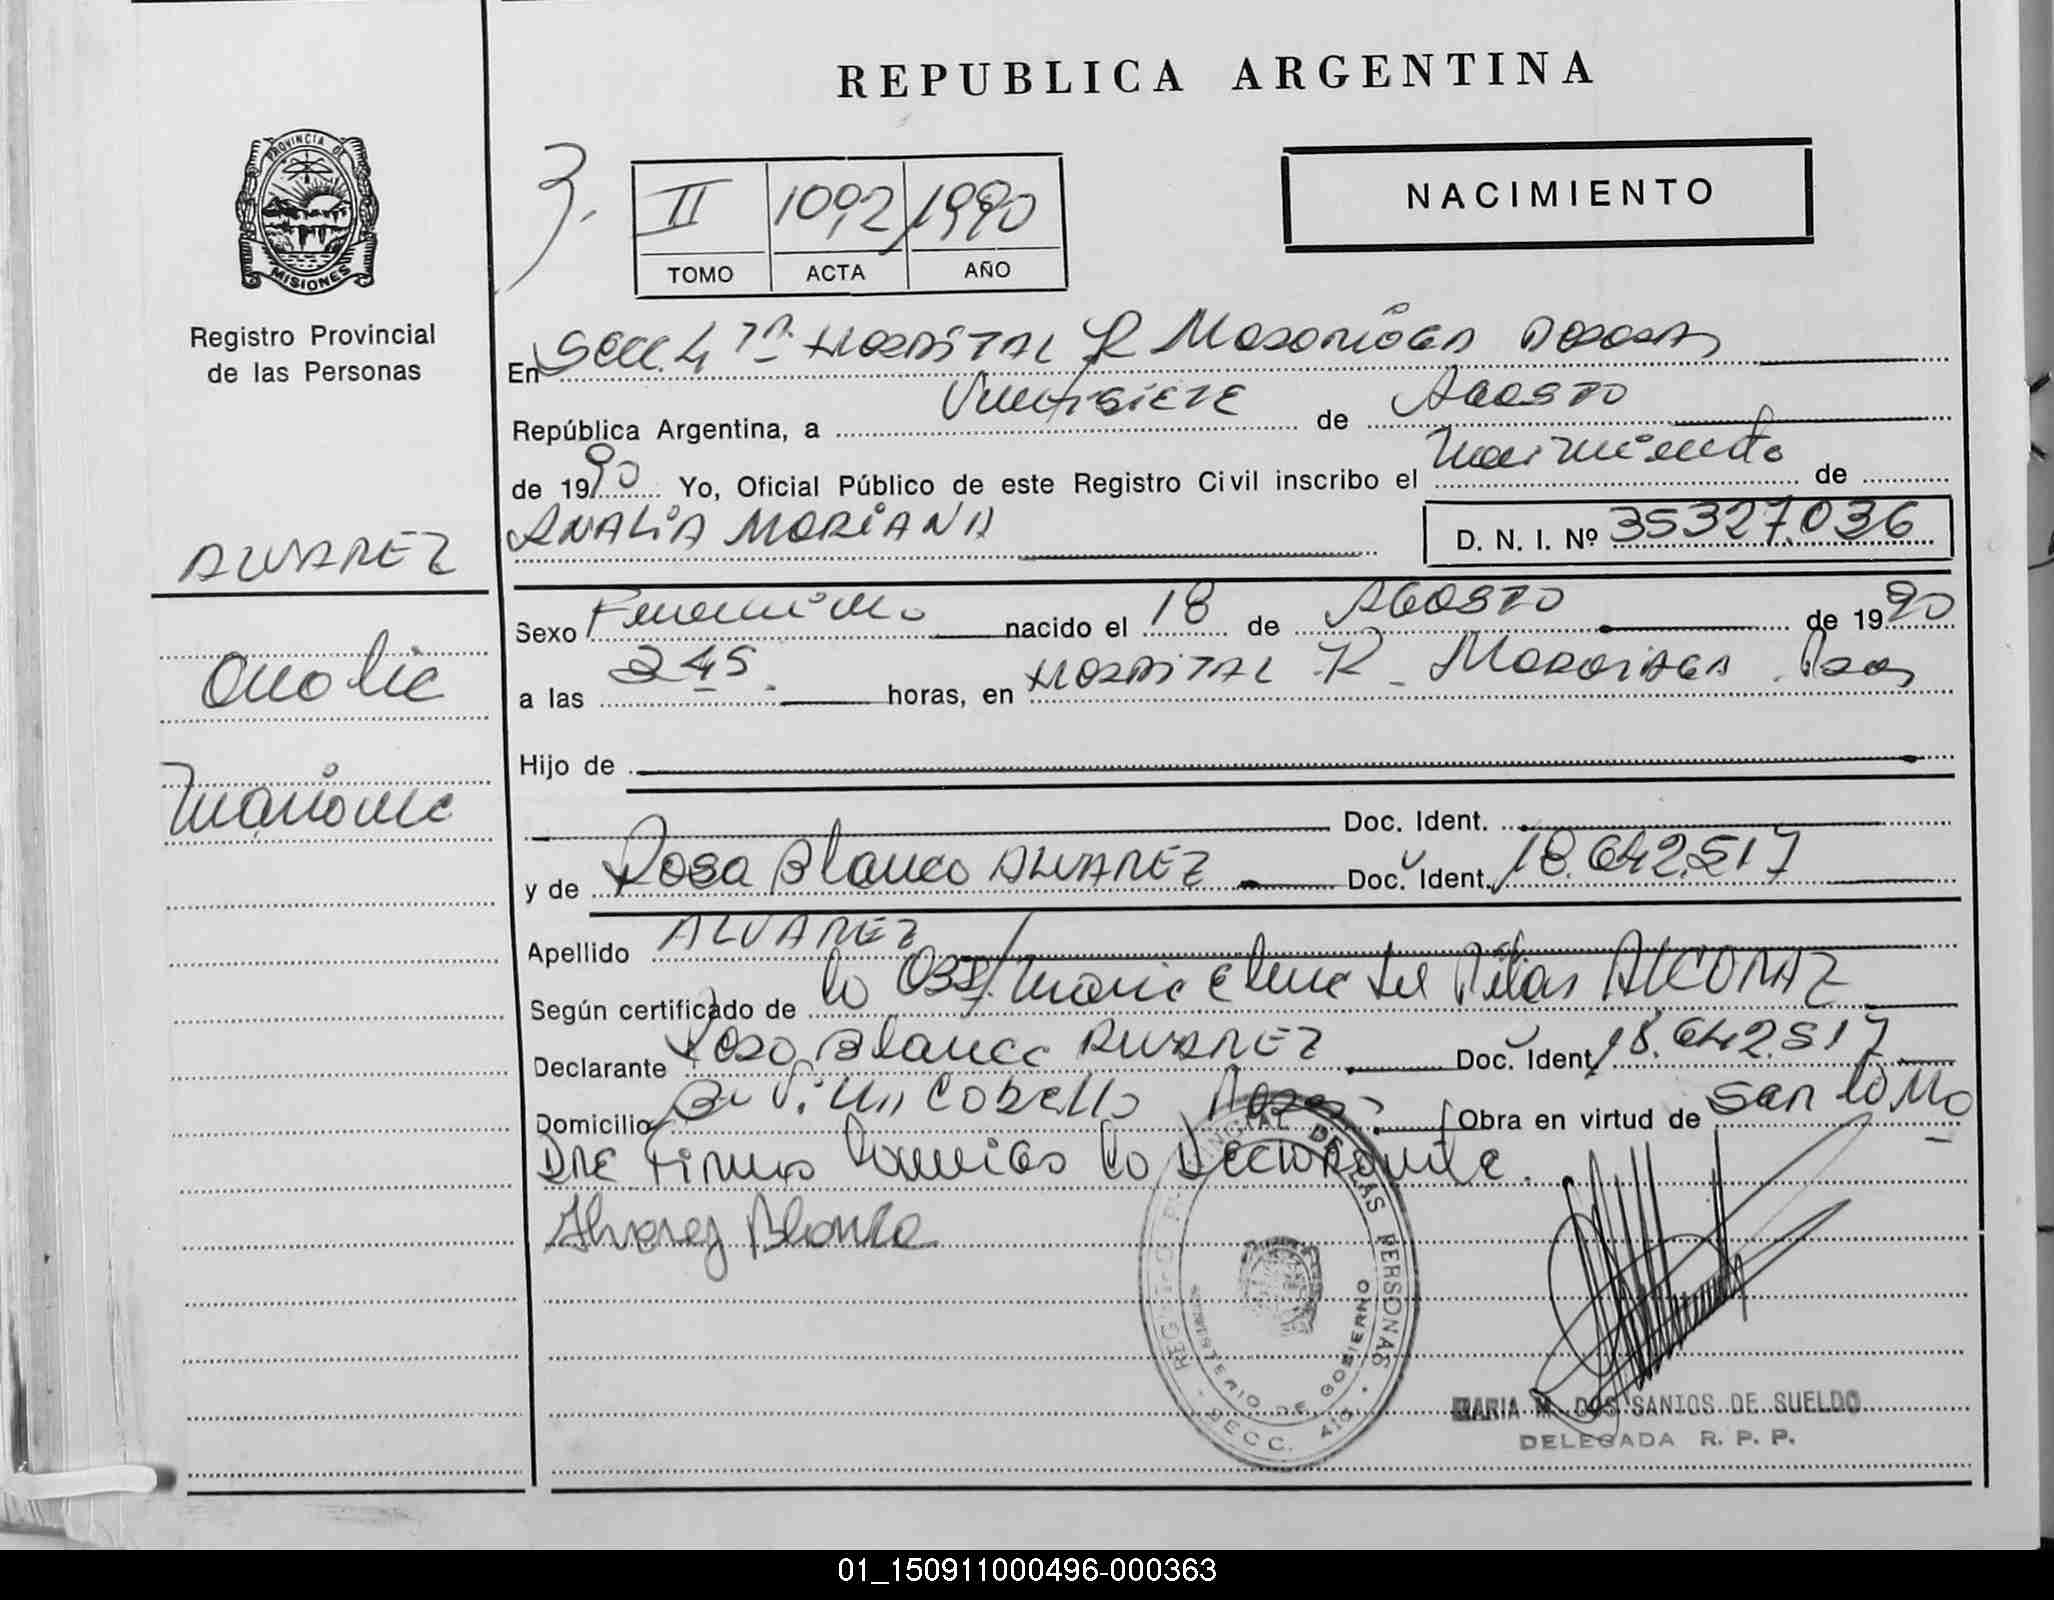 REPUBLICA ARGENTINA
PROVINCIA DE
MISIONES
Registro Provincial
de las Personas
3.
II 1092 1990
TOMO ACTA AÑO
NACIMIENTO
En Secc. 4ta HOSPITAL R Madariaga Posadas
República Argentina, a Veintisiete de Agosto
de 1990 Yo, Oficial Público de este Registro Civil inscribo el Nacimiento de
ANALiA MARiANA D. N. I. Nº 35327.036
ALVAREZ
Sexo Femenino nacido el 18 de AGOSTO de 1990
Analia
a las 245 horas, en HOSPITAL R. MADARIAGA Pdas
Hijo de
Mariana
Doc. Ident.
y de Rosa Blanca ALVAREZ Doc. Ident. 18.642.517
Apellido ALVAREZ
Según certificado de la Obst. Maria Elena del Pilar ALCORAZ
Declarante Rosa Blanca ALVAREZ Doc. Ident. 18.642.517
Domicilio Bº Villa Cabello Pdas Obra en virtud de ser la Ma
DRE Firma la Declarante.
Alvarez Blanca
REGISTRO PROVINCIAL DE LAS PERSONAS
MINISTERIO DE GOBIERNO
SECC. 4ta
MARIA M. DOS SANTOS DE SUELDO
DELEGADA R. P. P.
01_150911000496-000363